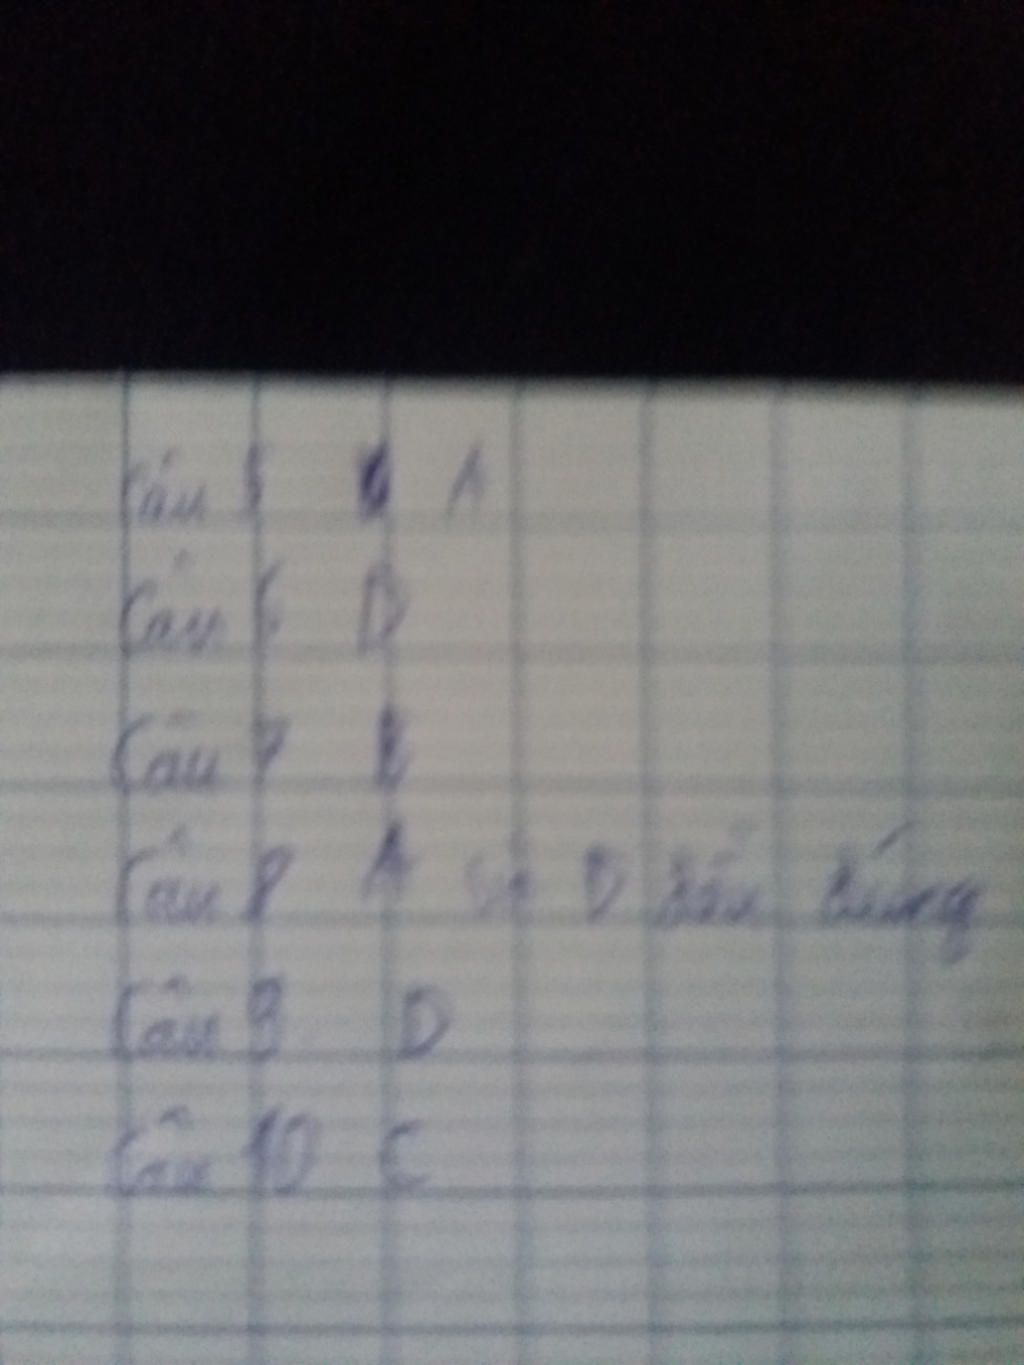 Câu 5 A
Câu 6 D
Câu 7
Câu 8 A và D đều đúng
Câu 9 D
Câu 10 C